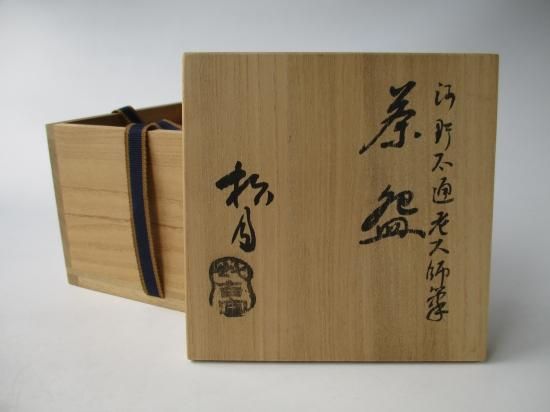 河野不通老大師筆
茶盌
松月